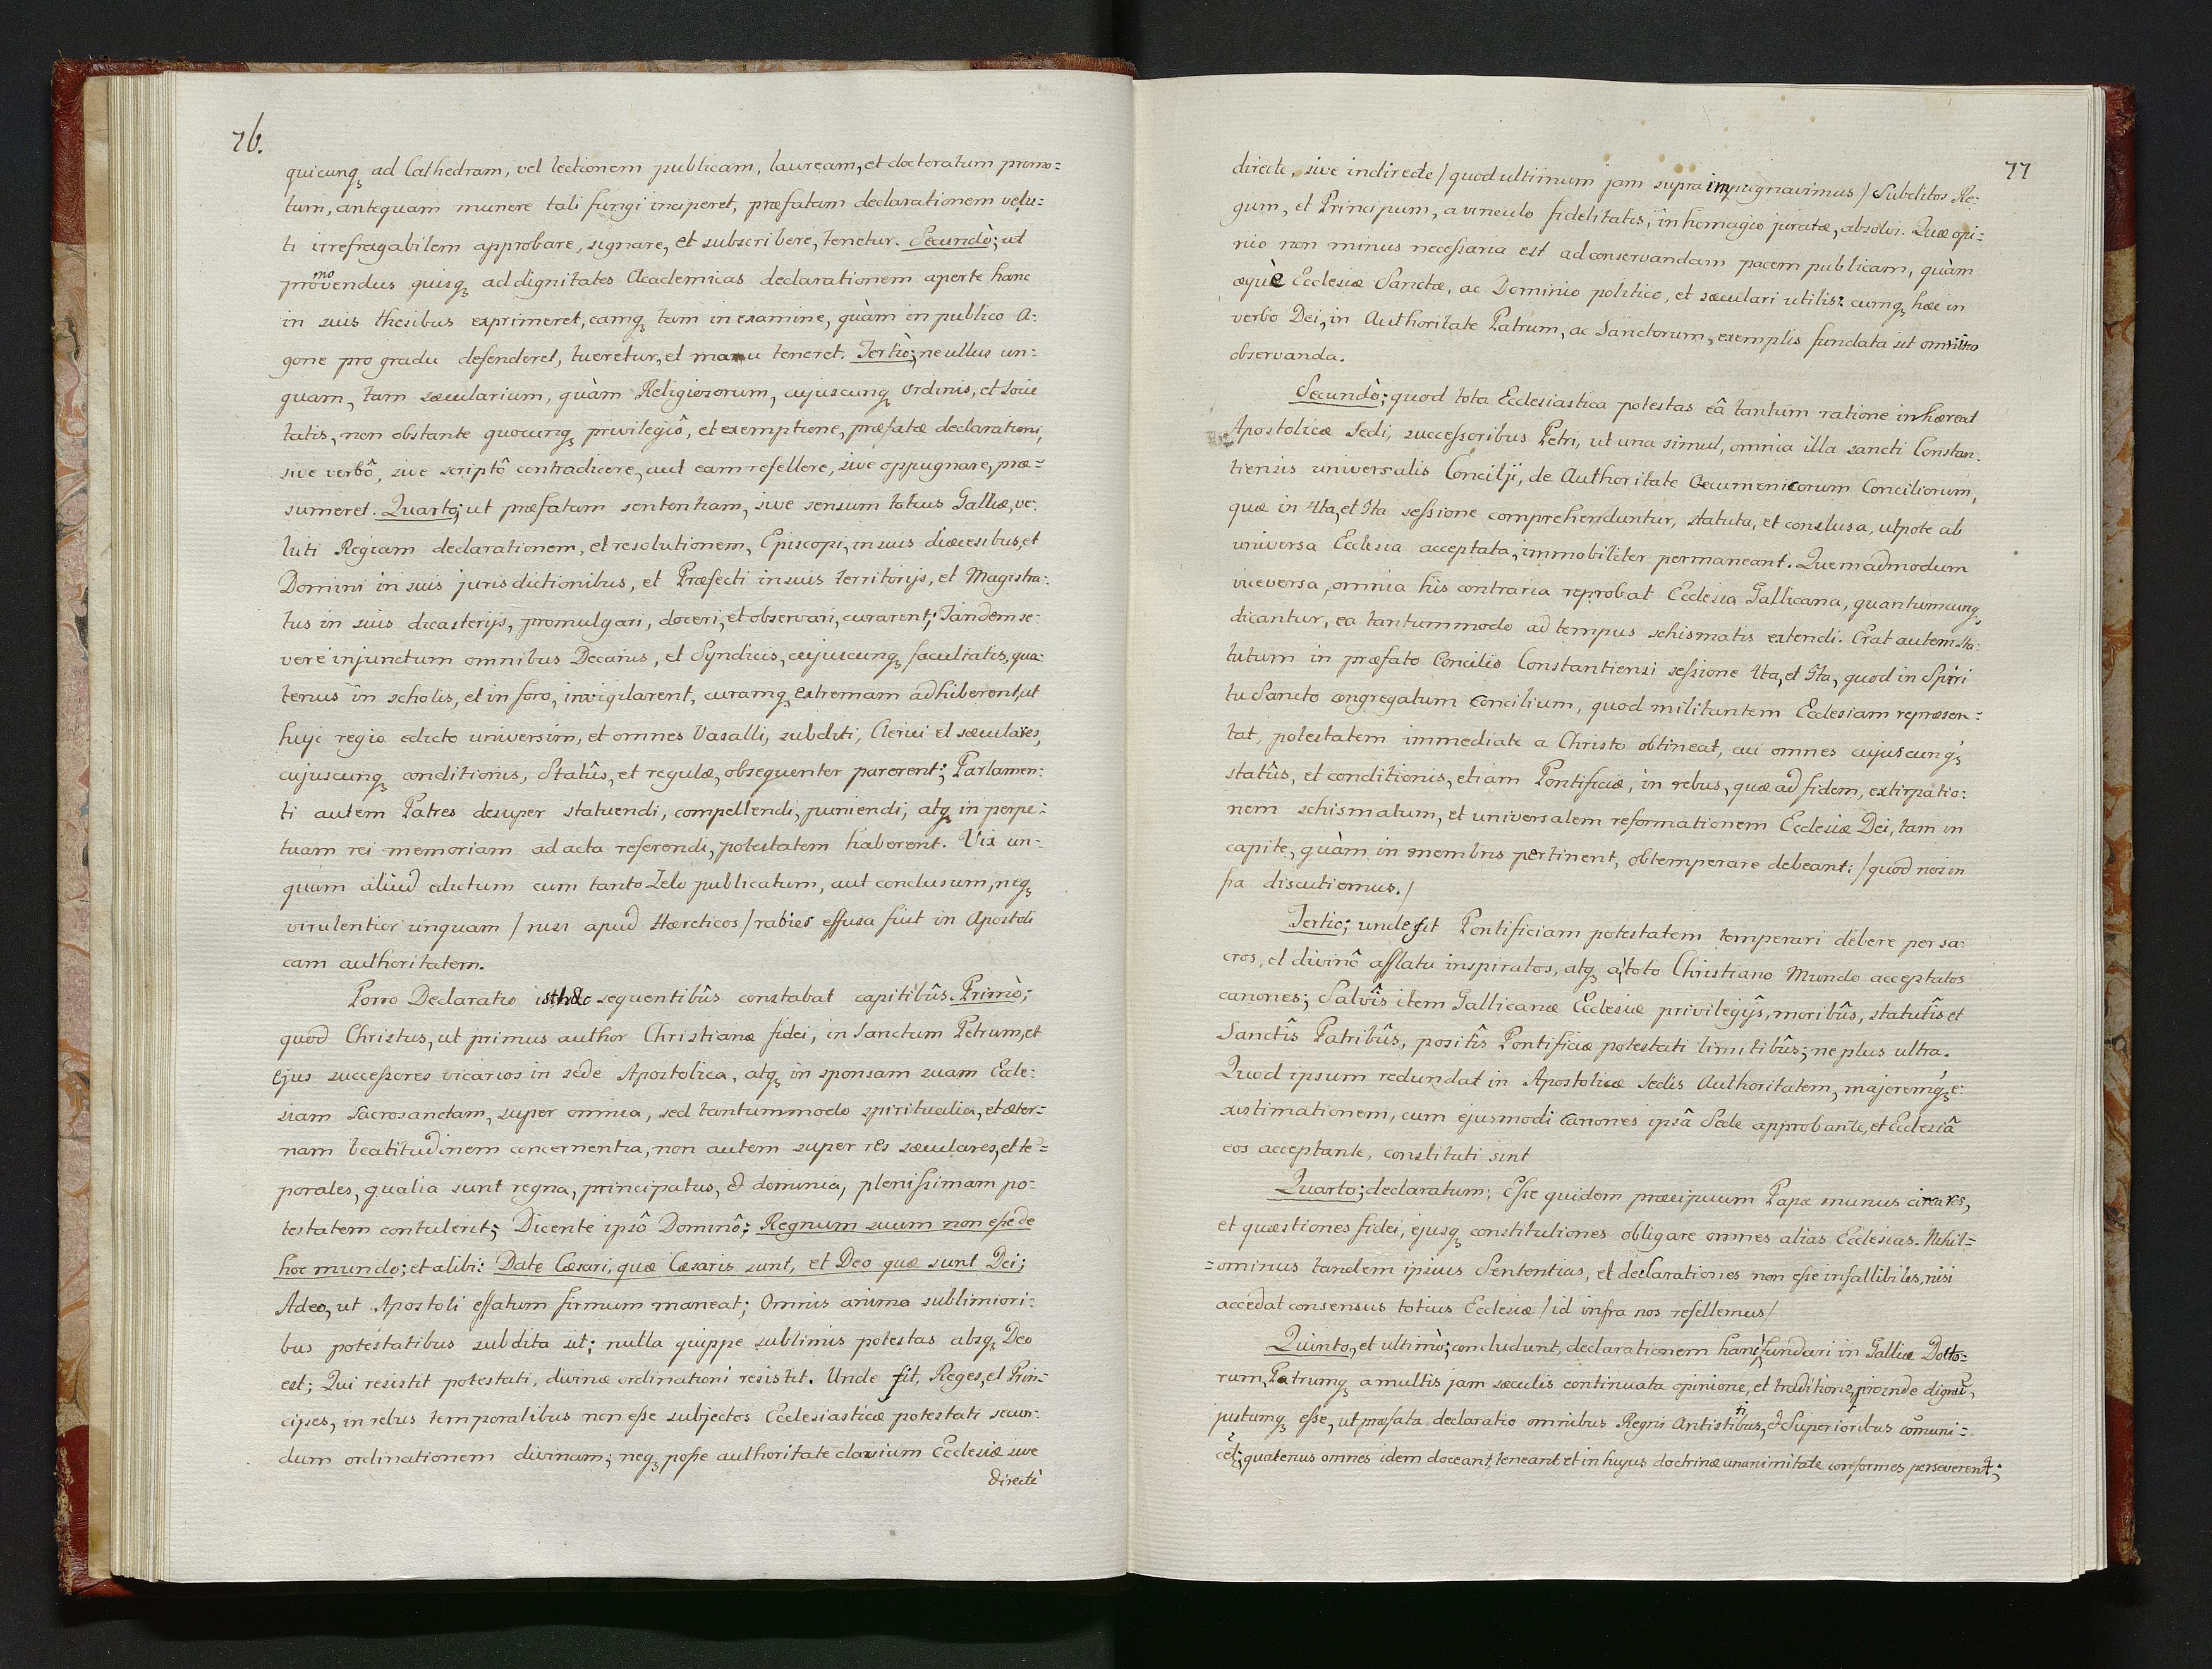 76.
quicunq, ad Cathedram, vel lectionem publicam, lauream, et doctoratum promo=
tum, antequam munere tali fungi inciperet, præfatam declarationem velu=
ti irrefragabilem approbare, signare, et subscribere, tenetur. Secundò; ut
promovendus quisq, ad dignitates Academicas declarationem aperte hanc
in suis thesibus exprimeret, eamq, tam in examine, quàm in publico A:
gone pro gradu defenderet, tueretur, et manu teneret. Tertiò; ne ullus un=
quam, tam sæcularium, quàm Religiosorum, cujuscunq, Ordinis, et Socie
tatis, non obstante quocunq, privilegiô, et exemptione, præfatæ declarationi,
sive verbô, sive scriptô contradicere, aut eam refellere, sive oppugnare, præ=
sumeret. Quarto; ut præfatam sententiam, sive sensum totius Galliæ, ve:
luti Regiam declarationem, et resolutionem, Episcopi, in suis diœcesibus, et
Domini in suis jurisdictionibus, et Præfecti in suis territorijs, et Magistra:
tus in suis dicasterijs, promulgari, doceri, et observari, curarent; Tandem se:
verè injunctum omnibus Decanis, et Syndicis, cujuscunq, facultatis, qua:
tenus in scholis, et in foro, invigilarent, curamq, extremam adhiberent, ut
huic regio edicto universim, et omnes Vasalli, subditi, Clerici et sæculares,
cujuscunq, conditionis, Statûs, et regulæ, obsequenter parerent; Parlamen:
ti autem Patres desuper statuendi, compellendi, puniendi, atq, in perpe:
tuam rei memoriam ad acta referendi, potestatem haberent. Vix un=
quam aliud edictum cum tanto Zelo publicatum, aut conclusum, neq,
virulentior unquam / nisi apud Hæreticos / rabies effusa fuit in Apostoli
cam authoritatem.
Porro Declaratio isthæc sequentibûs constabat capitibûs. Primò;
quod Christus, ut primus author Christianæ fidei, in Sanctum Petrum, et
ejus successores vicarios in sede Apostolica, atq, in sponsam suam Eccle:
siam Sacrosanctam, super omnia, sed tantummodo spiritualia, et æter=
nam beatitudinem concernentia, non autem super res sæculares, et te=
porales, qualia sunt regna, principatus, & dominia, plenissimam po=
testatem contulerit; Dicente ipsô Dominô; Regnum suum non esse de
hoc mundo; et alibi: Date Cæsari, quæ Cæsaris sunt, et Deo quæ sunt Dei;
Adeo, ut Apostoli effatum firmum maneat; Omnis anima sublimiori:
bus potestatibus subdita sit; nulla quippe sublimis potestas absq, Deo
est; Qui resistit potestati, divinæ ordinationi resistit. Unde fit, Reges, et Prin=
cipes, in rebus temporalibus non esse subjectos Ecclesiasticæ potestati secun:
dum ordinationem divinam; neq, posse authoritate clavium Ecclesiæ sive
directè
77
directe, sive indirecte / quod ultimum jam supra impugnavimus / Subditos Re:
gum, et Principum, a vinculo fidelitatis, in homagio juratæ, absolvi. Quæ opi=
nio non minus necessaria est ad conservandam pacem publicam, quàm
æquè Ecclesiæ Sanctæ, ac Dominio politico, et sæculari utilis: cumq, hæc in
verbo Dei, in Authoritate Patrum, ac Sanctorum, exemplis fundata sit omnino
observanda.
Secundò; quod tota Ecclesiastica potestas eâ tantum ratione inhæreat
Apostolicæ Sedi, successoribus Petri, ut una simul, omnia illa sancti Constan:
tiensis universalis Concilji, de Authoritate Oecumenicorum Conciliorum,
quæ in 4ta, et 5ta sessione comprehenduntur, statuta, et conclusa, utpote ab
universa Ecclesia acceptata, immobiliter permaneant. Quemadmodum
viceversa, omnia his contraria reprobat Ecclesia Gallicana, quantumcunq,
dicantur, ea tantummodo ad tempus schismatis extendi. Erat autem sta:
tutum in præfato Concilio Constantiensi sessione 4ta, et 5ta, quod in Spiri
tu Sancto congregatum Concilium, quod militantem Ecclesiam repræsen=
tat, potestatem immediatè a Christo obtineat, cui omnes cujuscunq,
statûs, et conditionis, etiam Pontificiæ, in rebus, quæ ad fidem, extirpatio:
nem schismatum, et universalem reformationem Ecclesiæ Dei, tam in
capite, quàm in membris pertinent, obtemperare debeant: / quod nos in
fra discutiemus. /
Tertio; unde fit Pontificiam potestatem temperari debere per sa:
cros, et divinô afflatu inspiratos, atq, a toto Christiano Mundo acceptatos
canones; Salvîs item Gallicanæ Ecclesiæ privilegijs, moribûs, statutîs et
Sanctîs Patribûs, positîs Pontificiæ potestati limitibûs; ne plus ultra.
Quod ipsum redundat in Apostolicæ Sedis Authoritatem, majoremq, e:
xistimationem, cum ejusmodi Canones ipsâ Sede approbante, et Ecclesiâ
eos acceptante, constituti sint
Quarto; declaratum; Esse quidem præcipuum Papæ munus circa res,
et quæstiones fidei, ejusq, constitutiones obligare omnes alias Ecclesias. Nihil=
=ominus tandem ipsius Sententias, et declarationes non esse infallibiles, nisi
accedat consensus totius Ecclesiæ / id infra nos refellemus /
Quinto, et ultimò; concludunt, declarationem hanc fundari in Galliæ Docto=
rum, Patrumq, a multis jam sæculis continuata opinione, et traditione, proinde dignũ,
justumq, esse, ut præfata declaratio omnibus Regni Antistitibus, & Superioribus cõmuni=
cet; quatenus omnes idem doceant, teneant et in hujus doctrinæ unanimitate conformes perseverent;